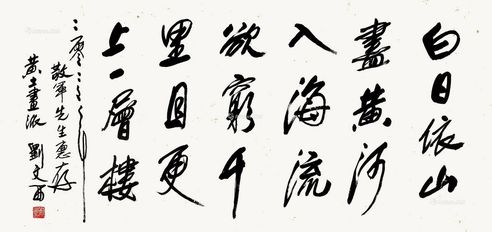 白日依山
盡黄河
入海流
欲窮千
里目更
上一層樓
二零一
敬軍先生惠存
黄土畫派 劉文西